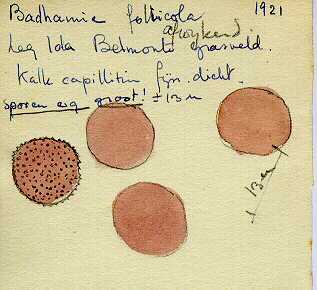 Badhamia follicola 1921
afwijkend
Leg Ida Belmonte grasveld.
Kalk capillitia fijn. dicht.
sporen erg groot! ± 13 µ
13 µ